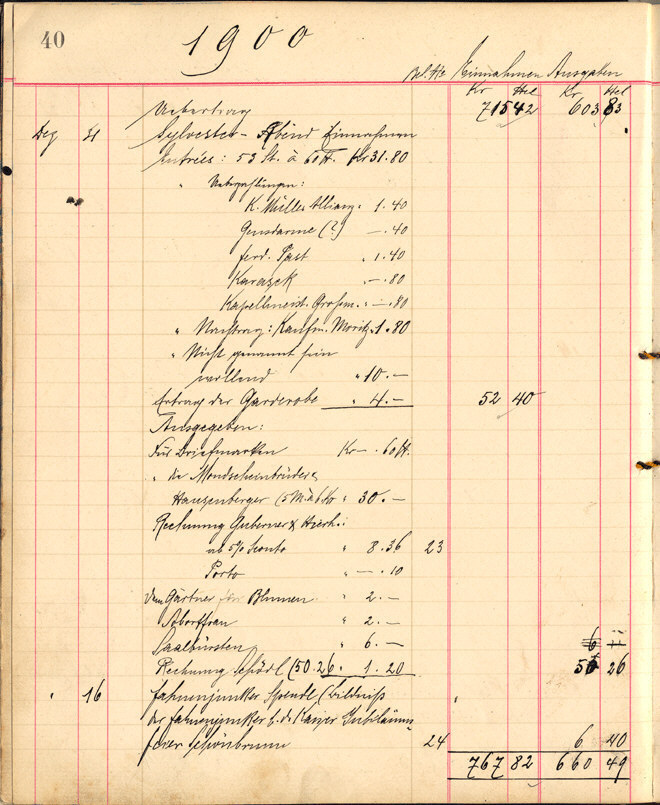 40
1900
Einnahmen Ausgaben
Kr Hel Kr Hel
Uebertrag 715 42 603 83
Dez 31 Sylvester-Abend Einnahmen
Entrées: 53 St. à 60 H. Kr 31.80
" Ueberzahlungen:
K. Müller Allianz " 1.40
Gendarme (?) —.40
Ferd. Past " 1.40
Karasek " —.80
Kapellmeist. " —.80
" Nachtrag: Kaufm. Moritz " 1.80
" Nicht genannt sein
wollend " 10.—
Ertrag der Garderobe " 4.— 52 40
Ausgegeben:
Für Briefmarken Kr —.60 H.
" die Mondscheinbrüder
" 30.—
Rechnung
ab 5% Sconto " 8.36 23
Porto " —.10
Dem Gärtner für Blumen " 2.—
Abortfrau " 2.—
Saalbürsten " 6.—
Rechnung Schödl (50.26 " 1.20 50 26
" 16 Fahnenjunker (Bildniß
der Fahnenjunker b. d. Kaiser Jubiläums
feier Schönbrunn 24 6 40
767 82 660 49